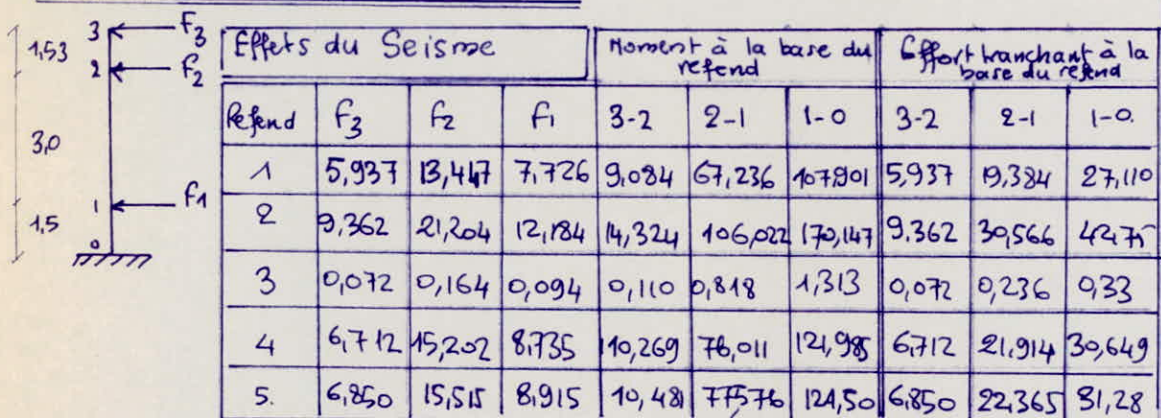 1,53
3,0
1,5
3
2
1
0
F3
F2
F1
Effets du Seisme | Moment à la base du refend | Effort tranchant à la base du refend
Refend | F3 | F2 | F1 | 3-2 | 2-1 | 1-0 | 3-2 | 2-1 | 1-0.
1 | 5,937 | 13,447 | 7,726 | 9,084 | 67,236 | 107,901 | 5,937 | 19,384 | 27,110
2 | 9,362 | 21,204 | 12,184 | 14,324 | 106,022 | 170,147 | 9,362 | 30,566 | 42,75
3 | 0,072 | 0,164 | 0,094 | 0,110 | 0,818 | 1,313 | 0,072 | 0,236 | 0,33
4 | 6,712 | 15,202 | 8,735 | 10,269 | 76,011 | 121,985 | 6,712 | 21,914 | 30,649
5. | 6,850 | 15,515 | 8,915 | 10,481 | 77,576 | 124,50 | 6,850 | 22,365 | 31,28